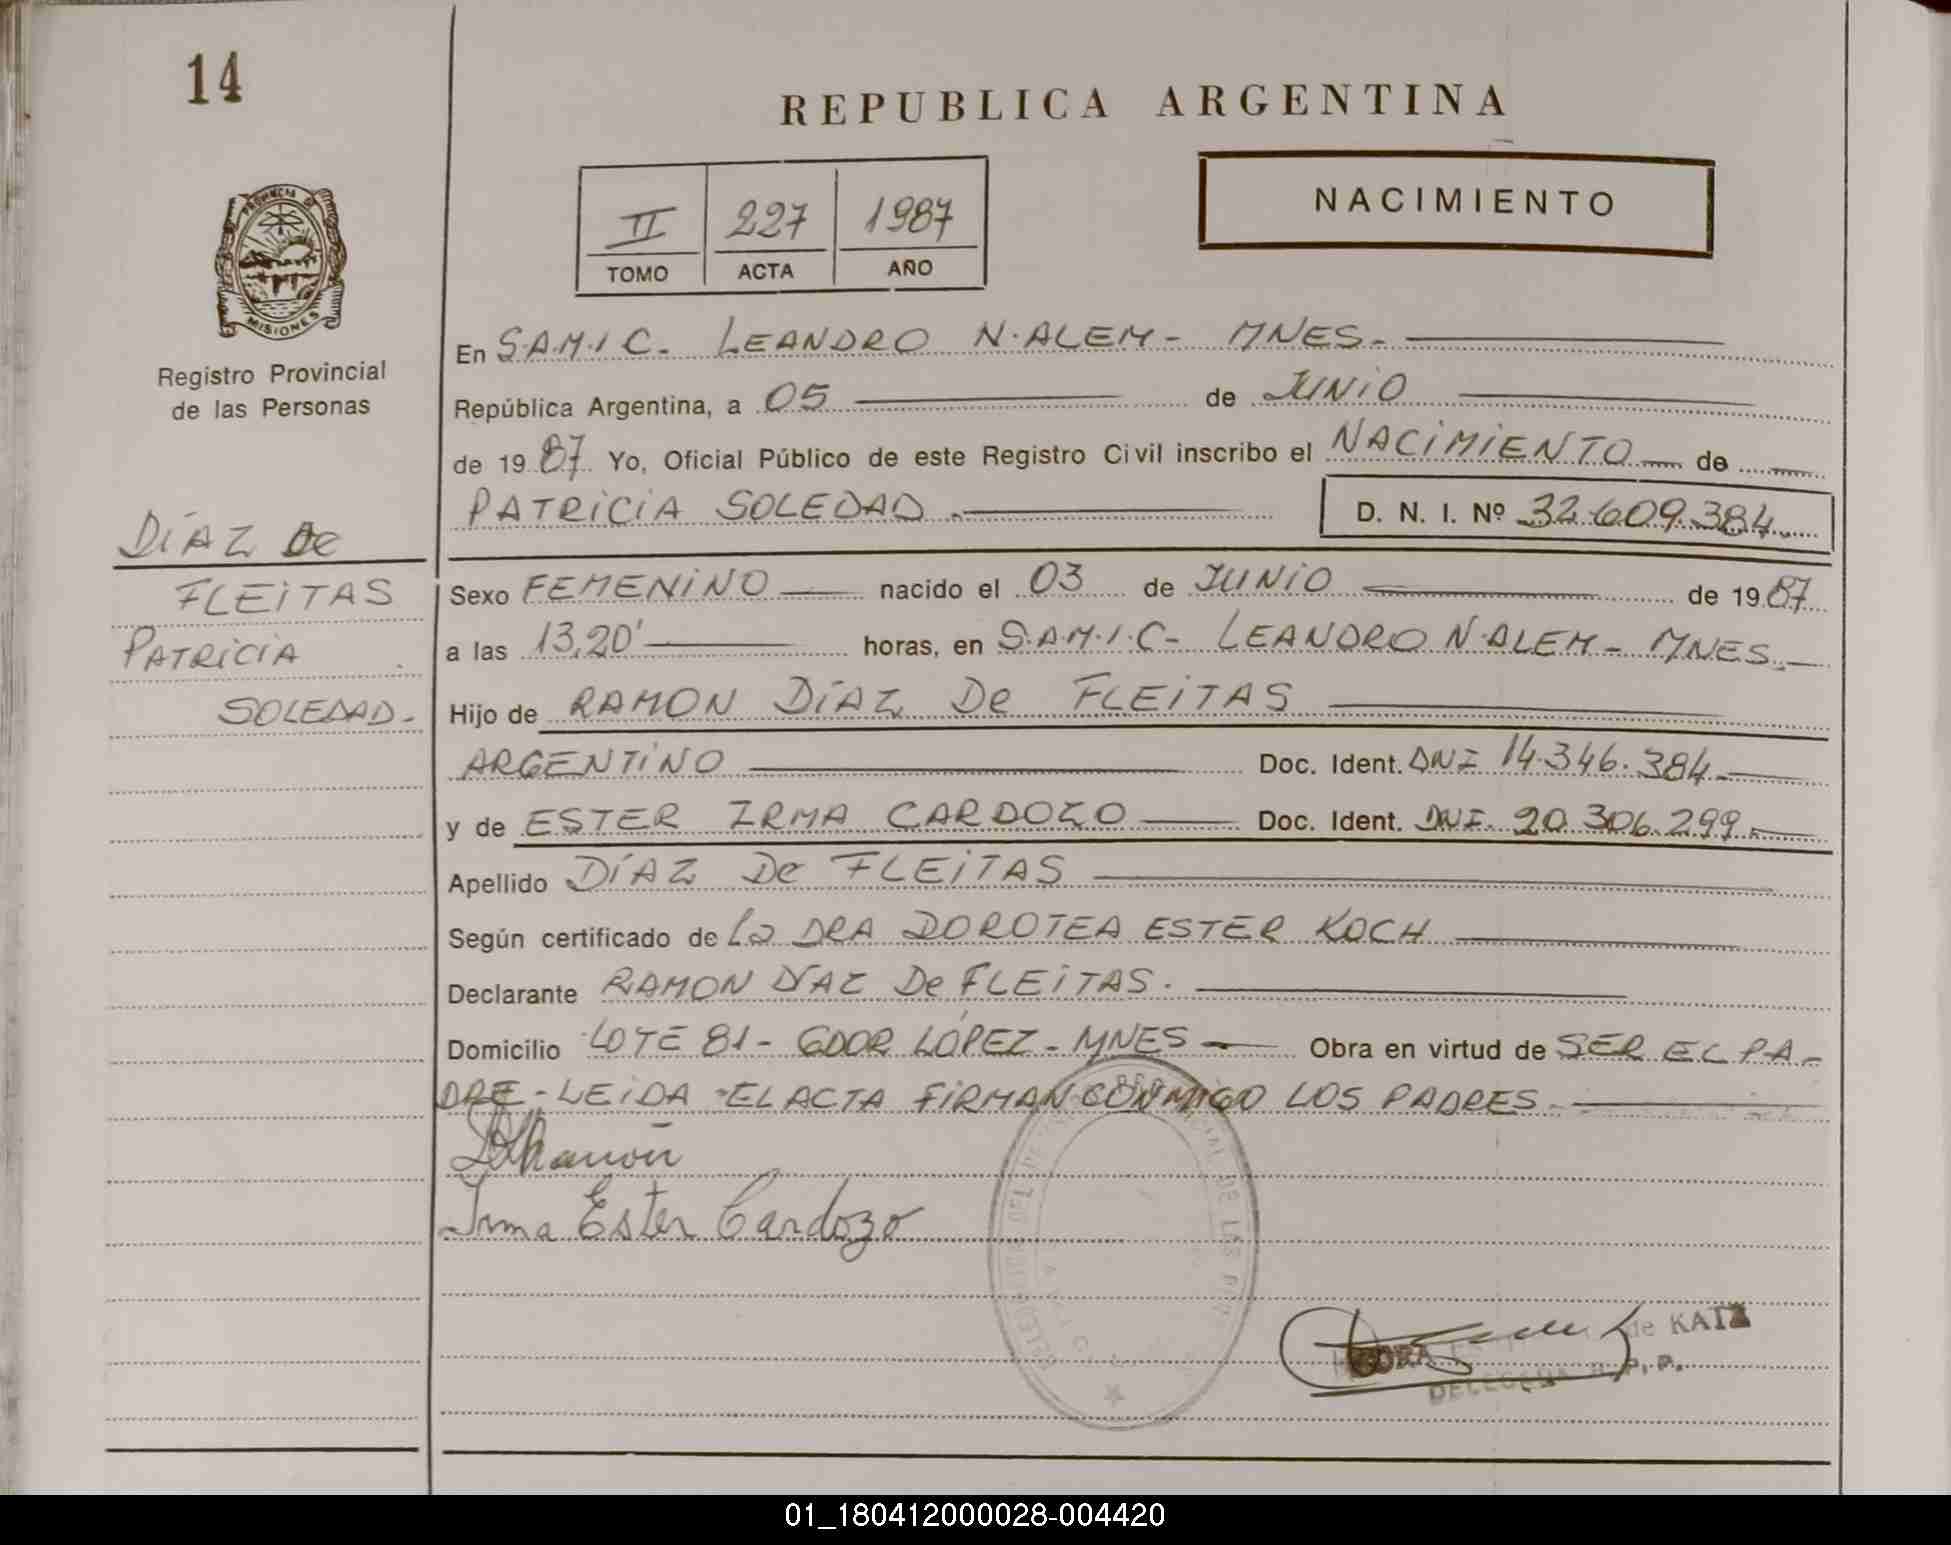 14
REPUBLICA ARGENTINA
II 227 1987
TOMO ACTA AÑO
NACIMIENTO
PROVINCIA DE
MISIONES
Registro Provincial
de las Personas
DÍAZ De
FLEITAS
PATRICIA
SOLEDAD-
En S.A.M.I.C. LEANDRO N. ALEM - MNES.-
República Argentina, a 05 de JUNIO
de 1987 Yo, Oficial Público de este Registro Civil inscribo el NACIMIENTO de
PATRICIA SOLEDAD.- D. N. I. Nº 32.609.384
Sexo FEMENINO nacido el 03 de JUNIO de 1987
a las 13,20' horas, en S.A.M.I.C- LEANDRO N. ALEM - MNES.-
Hijo de RAMON DÍAZ De FLEITAS
ARGENTINO Doc. Ident. DNI 14.346.384
y de ESTER IRMA CARDOZO Doc. Ident. DNI. 20.306.299.-
Apellido DÍAZ De FLEITAS
Según certificado de La DRA DOROTEA ESTER KOCH
Declarante RAMON DÍAZ De FLEITAS.
Domicilio LOTE 81 - GDOR LÓPEZ - MNES Obra en virtud de SER EL PA-
DRE - LEIDA EL ACTA FIRMAN CONMIGO LOS PADRES.
Ramón
Irma Ester Cardozo
de KATZ
DELEGADA R. P. P.
01_180412000028-004420